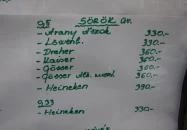 0,5 SÖRÖK ár.
- Arany Ászok 330,-
- Löwenb. 390,-
- Dreher 360,-
- Kaiser 360,-
- Gösser 360,-
- Gösser Alk. ment. 360,-
- Heineken 390,-
0,33
- Heineken 330,-